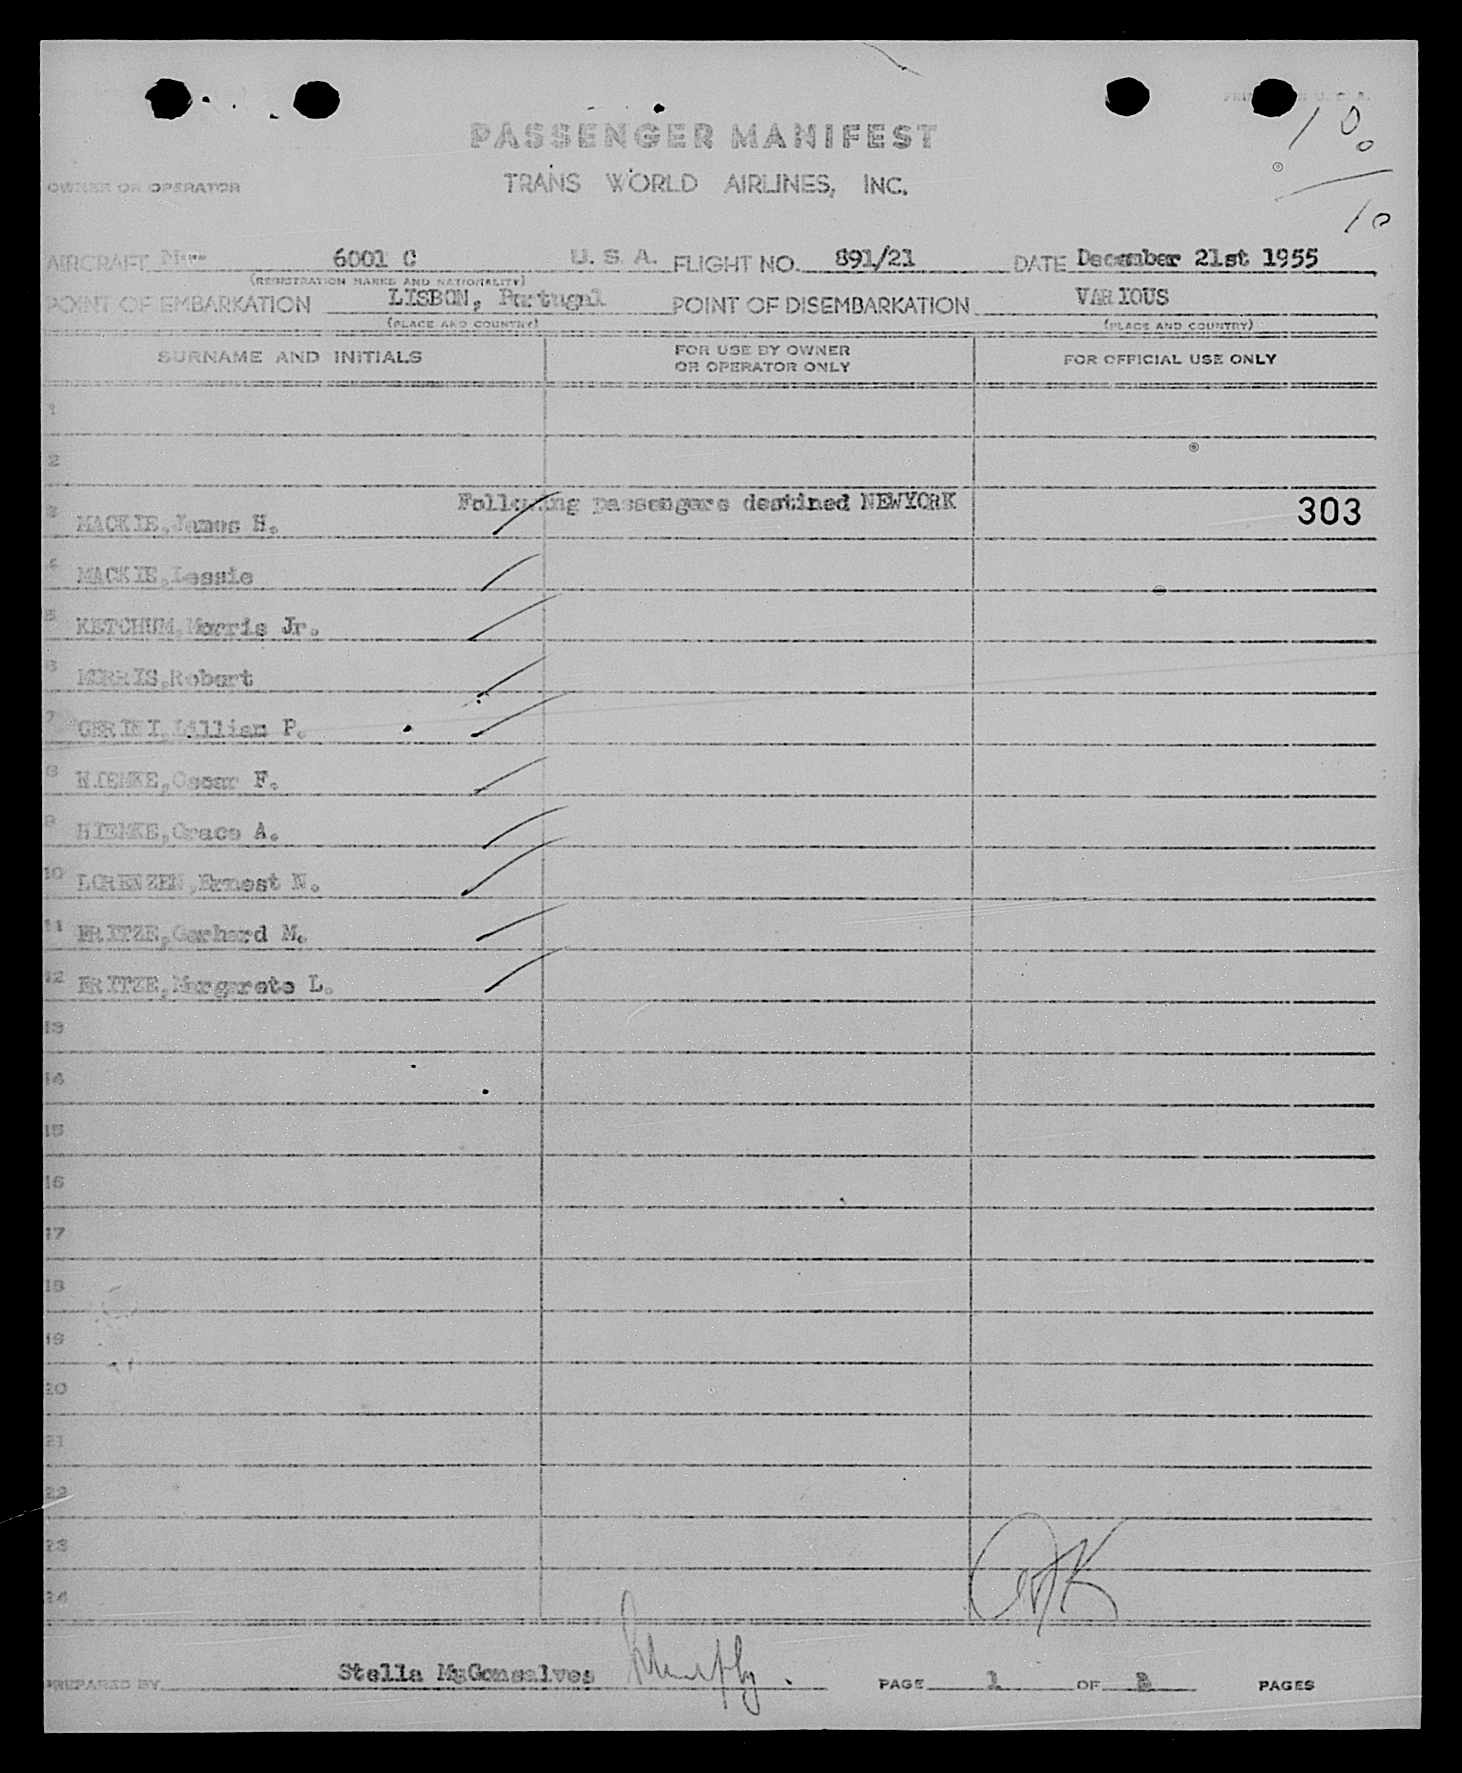 PRINTED IN U. S. A.
10
0
10
PASSENGER MANIFEST
OWNER OR OPERATOR TRANS WORLD AIRLINES, INC.
AIRCRAFT 6001 C U. S. A. FLIGHT NO. 891/21 DATE December 21st 1955
(REGISTRATION MARKS AND NATIONALITY)
POINT OF EMBARKATION LISBON, Portugal POINT OF DISEMBARKATION VARIOUS
(PLACE AND COUNTRY) (PLACE AND COUNTRY)
SURNAME AND INITIALS FOR USE BY OWNER OR OPERATOR ONLY FOR OFFICIAL USE ONLY
1
2
Following passengers destined NEWYORK
3 MACKIE,James H. 303
4 MACKIE,Lessie
5 KETCHUM,Morris Jr.
6 MORRIS,Robert
7 GERINI,Lillian P.
8 HIEMKE,Oscar F.
9 HIEMKE,Grace A.
10 LORENZEN,Ernest N.
11 FRITZE,Gerhard M.
12 FRITZE,Margarete L.
13
14
15
16
17
18
19
20
21
22
23
24
PREPARED BY Stella MgGonsalves PAGE 1 OF PAGES